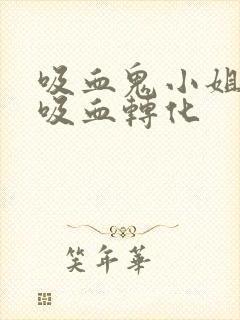 吸血鬼小姐
吸血轉化
笑年華